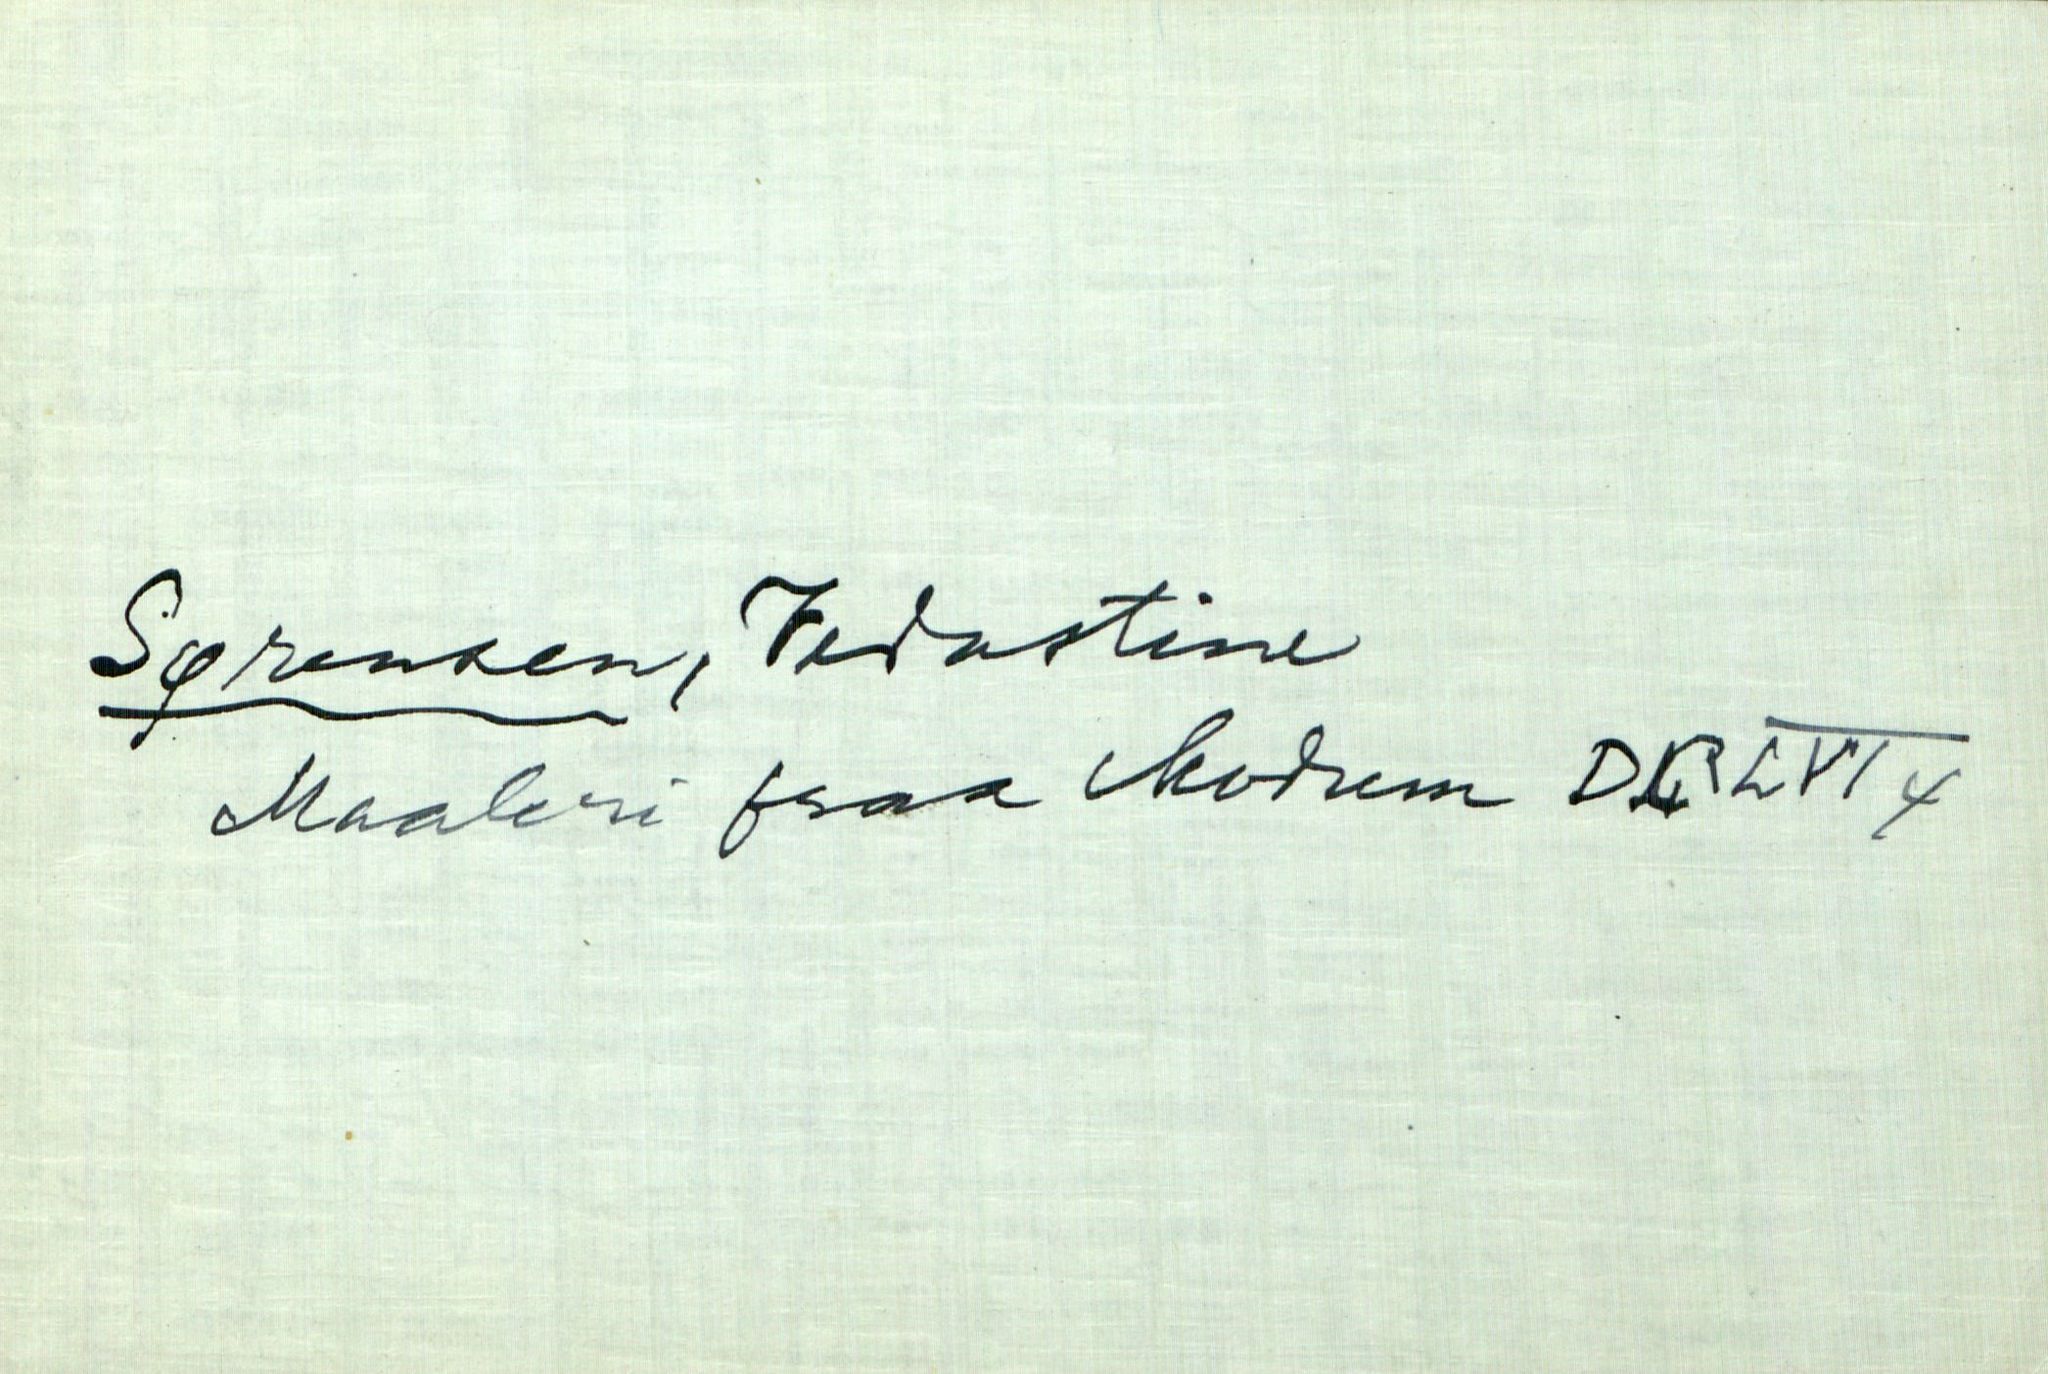 Sørensen, Vedastine
Maaleri fraa Modum DGR LVI 4